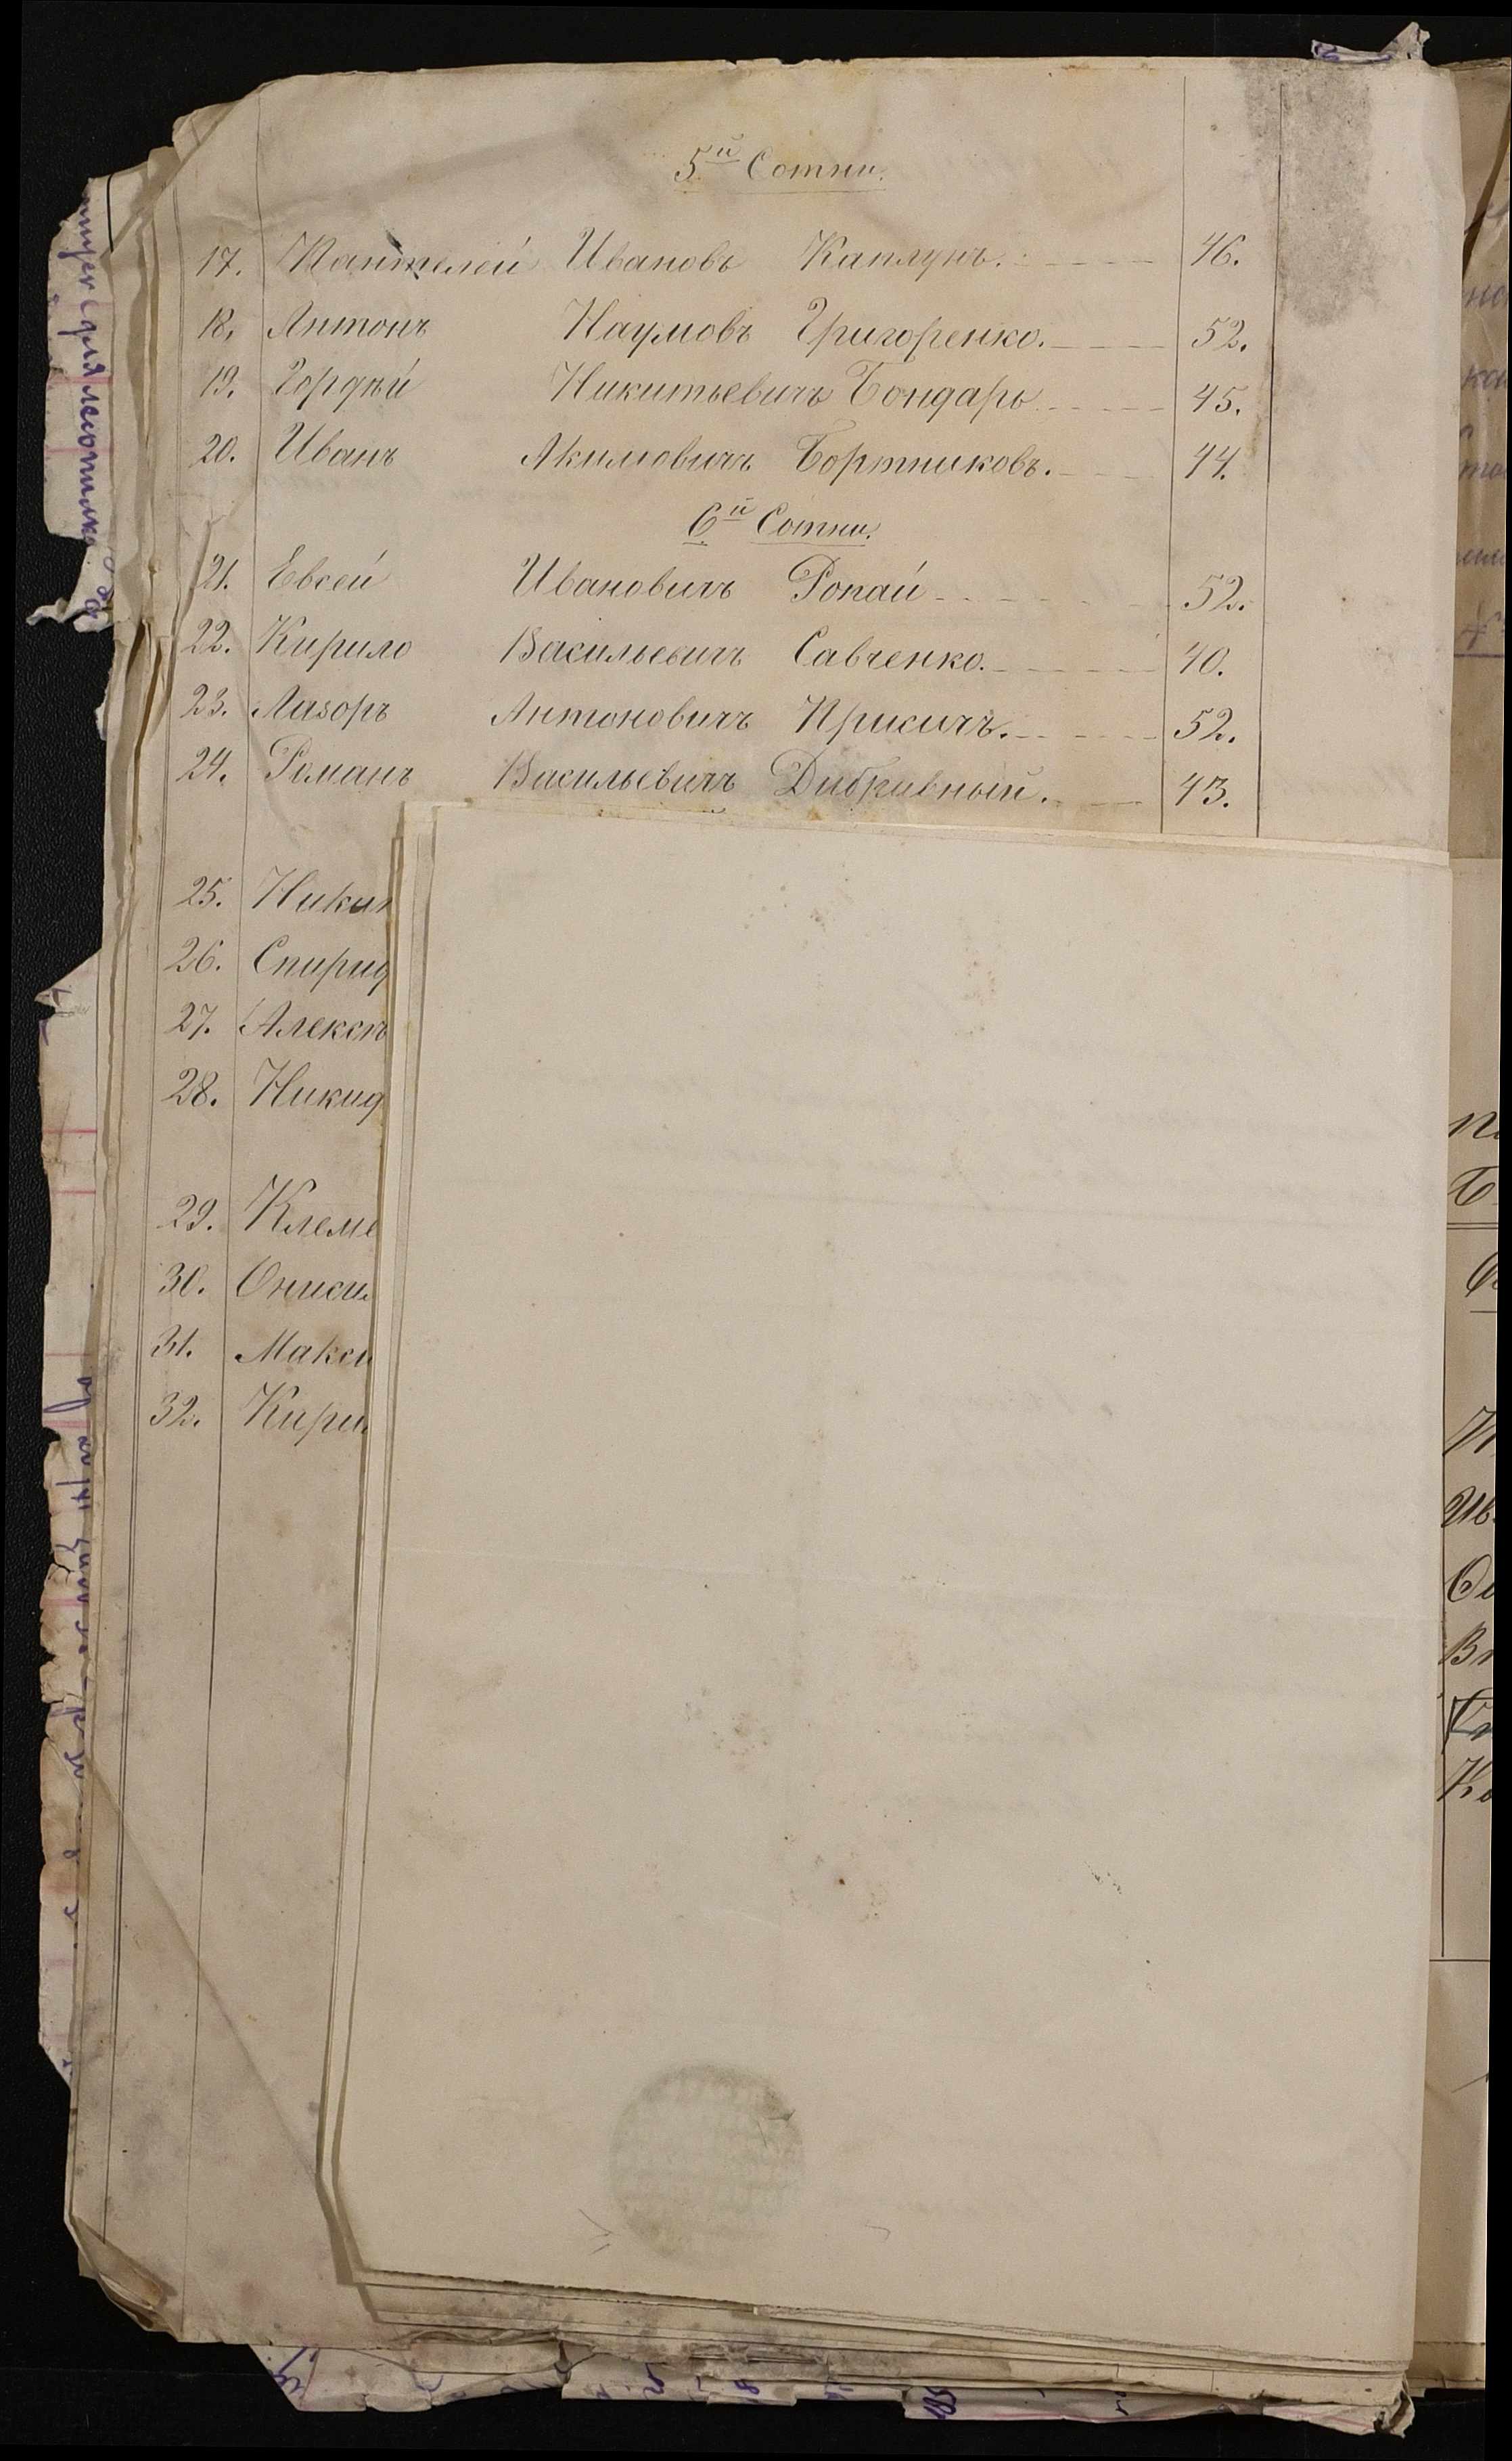 5й Сотни.
17. Пантелей Ивановъ Каплунъ. 46.
18. Антонъ Наумовъ Григоренко. 52.
19. Гордѣй Никитьевичъ Бондарь 45.
20. Иванъ Акимовичъ Бортниковъ. 44.
6й Сотни.
21. Евсей Ивановичъ Ропай 52.
22. Кирило Васильевичъ Савченко. 40.
23. Лазоръ Антоновичъ 52.
24. Романъ Васильевичъ Дибривный. 43.
25. Никит
26. Спирид
27. Алексѣ
28. Никид
29. Клеме
30. Ониси
31. Макси
32. Кири